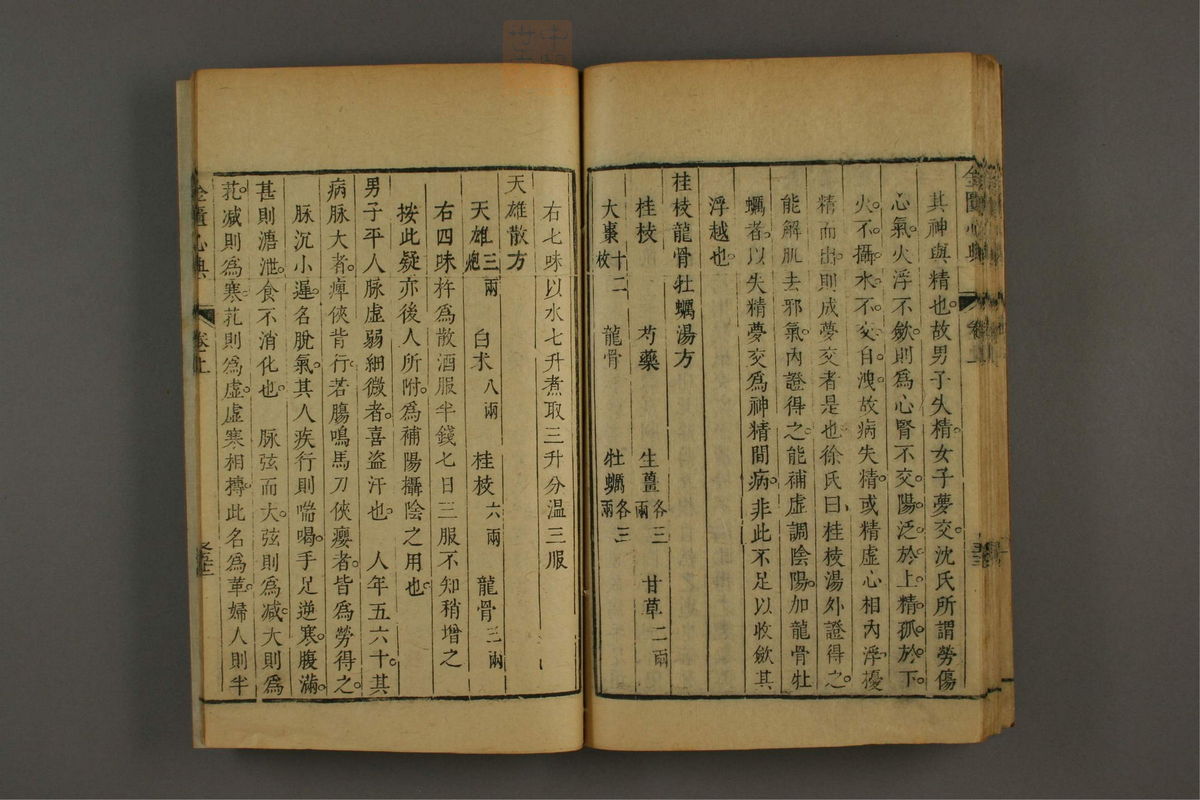 其神與精也故男子失精女子夢交沈氏所謂勞傷
心氣火浮不斂則爲心腎不交陽泛於上精孤於下
火不攝水不交自洩故病失精或精虛心相內浮擾
精而出則成夢交者是也徐氏曰桂枝湯外證得之
能解肌去邪氣內證得之能補虛調陰陽加龍骨牡
蠣者以失精夢交爲神精間病非此不足以收斂其
浮越也
桂枝龍骨牡蠣湯方
桂枝 芍藥 生薑各三兩 甘草二兩
大棗十二枚 龍骨 牡蠣各三兩
右七味以水七升煮取三升分温三服
天雄散方
天雄三兩炮 白朮八兩 桂枝六兩 龍骨三兩
右四味杵爲散酒服半錢七日三服不知稍增之
按此疑亦後人所附爲補陽攝陰之用也
男子平人脉虛弱細微者喜盜汗也 人年五六十其
病脉大者痺俠背行若腸鳴馬刀俠癭者皆爲勞得之
脉沉小遲名脫氣其人疾行則喘喝手足逆寒腹滿
甚則溏泄食不消化也 脉弦而大弦則爲减大則爲
芤减則爲寒芤則爲虛虛寒相搏此名爲革婦人則半
金匱心典 卷上